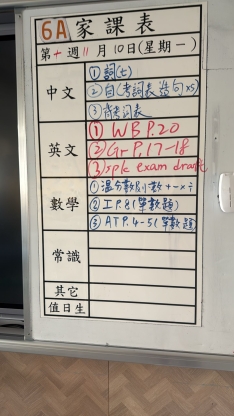 6A 家課表
第十週 11月10日(星期一)
中文
① 詞(七)
② 自(考詞表造句x5)
③ 背考詞表
英文
① WB P.20
② Gr P.17-18
③ sple exam draft
數學
① 溫分數小數+-×÷
② I P.8(單數題)
③ ATP.4-5(單數題)
常識
其它
值日生